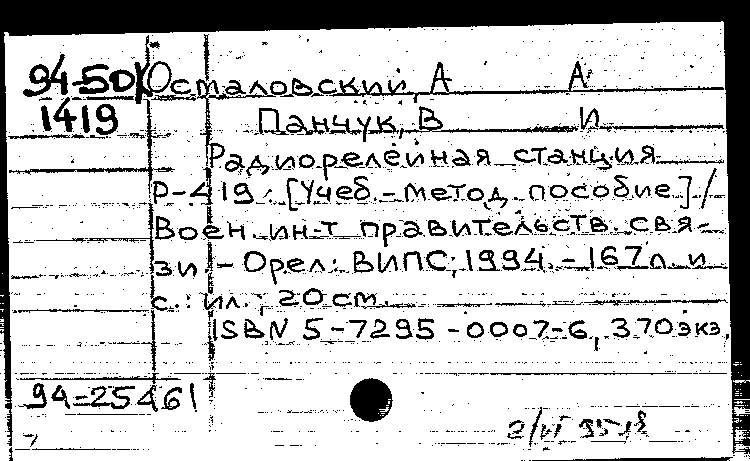 94-50 Осталовский, А А
1419 Панчук, В И
Радиорелейная станция
Р-419: [Учеб.-метод. пособие] /
Воен. ин-т правительств. свя-
зи. - Орел: ВИПС, 1994. - 167 л. и
с.: ил.; 20 см.
ISBN 5-7295-0007-6, 370 экз.
94-25461